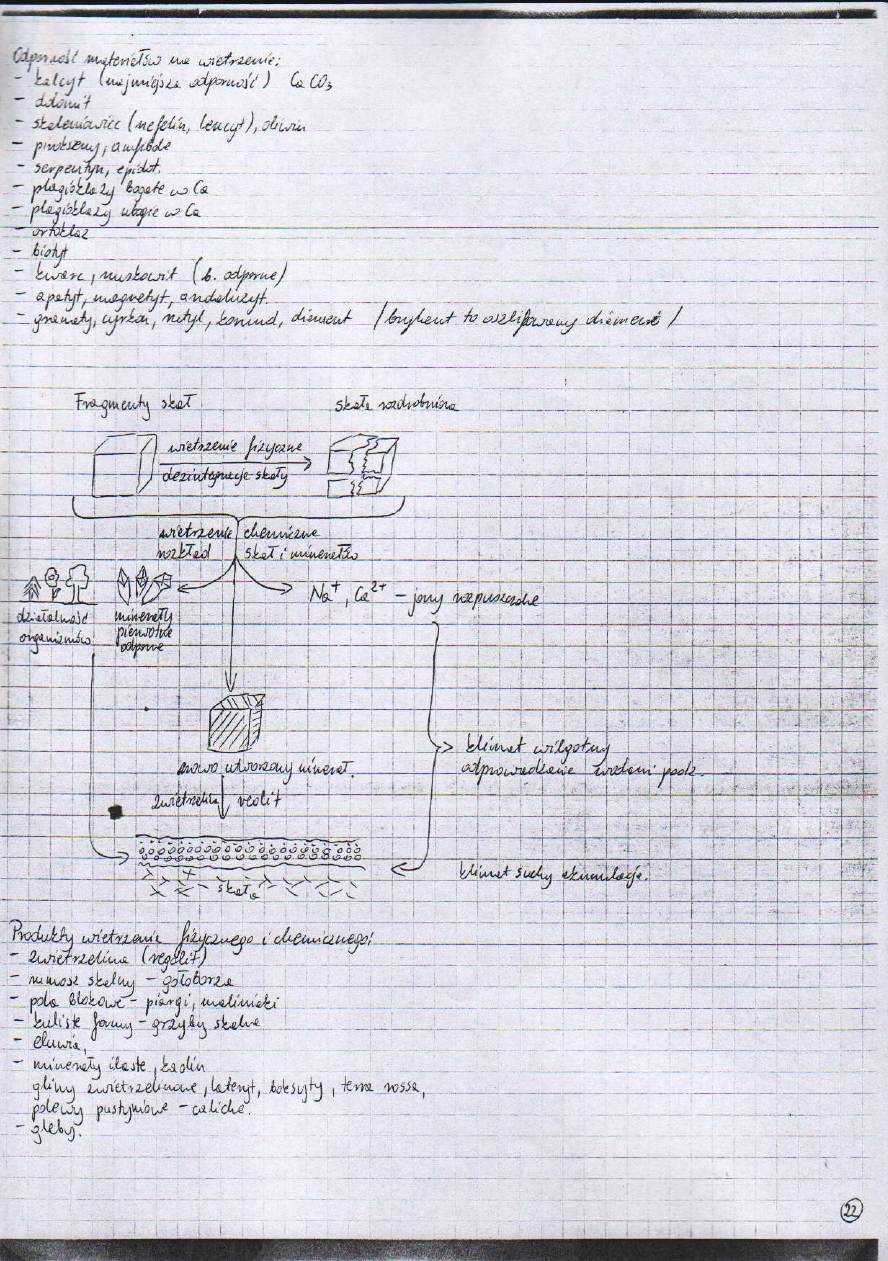 Odporność materiałów na wietrzenie:
- kalcyt (najmniejsza odporność) CaCO3
- dolomit
- skaleniowce (nefelin, leucyt), oliwin
- pirokseny, amfibole
- serpentyn, epidot.
- plagioklazy bogate w Ca
- plagioklazy ubogie w Ca
- ortoklaz
- biotyt
- kwarc, muskowit (b. odporne)
- apatyt, magnetyt, andaluzyt.
- granaty, cyrkon, rutyl, korund, diament / brylant to oszlifowany diament /
Fragmenty skał
skała rozdrobniona
wietrzenie fizyczne
dezintegracja skały
wietrzenie chemiczne
rozkład skał i minerałów
Na+, Ca2+ - jony rozpuszczone
działalność
organizmów
minerały
pierwotne
odporne
klimat wilgotny
odprowadzanie wodami podz.
nowo utworzony minerał.
zwietrzelina
klimat suchy akumulacja.
skała
Produkty wietrzenia fizycznego i chemicznego:
- zwietrzelina (regolit)
- rumosz skalny - gołoborza
- pola blokowe - piargi, maliniaki
- kuliste formy - grzyby skalne
- eluwia,
- minerały ilaste, kaolin
gliny zwietrzelinowe, lateryt, boksyty, terra rossa,
polewy pustyniowe - caliche.
- gleby.
22